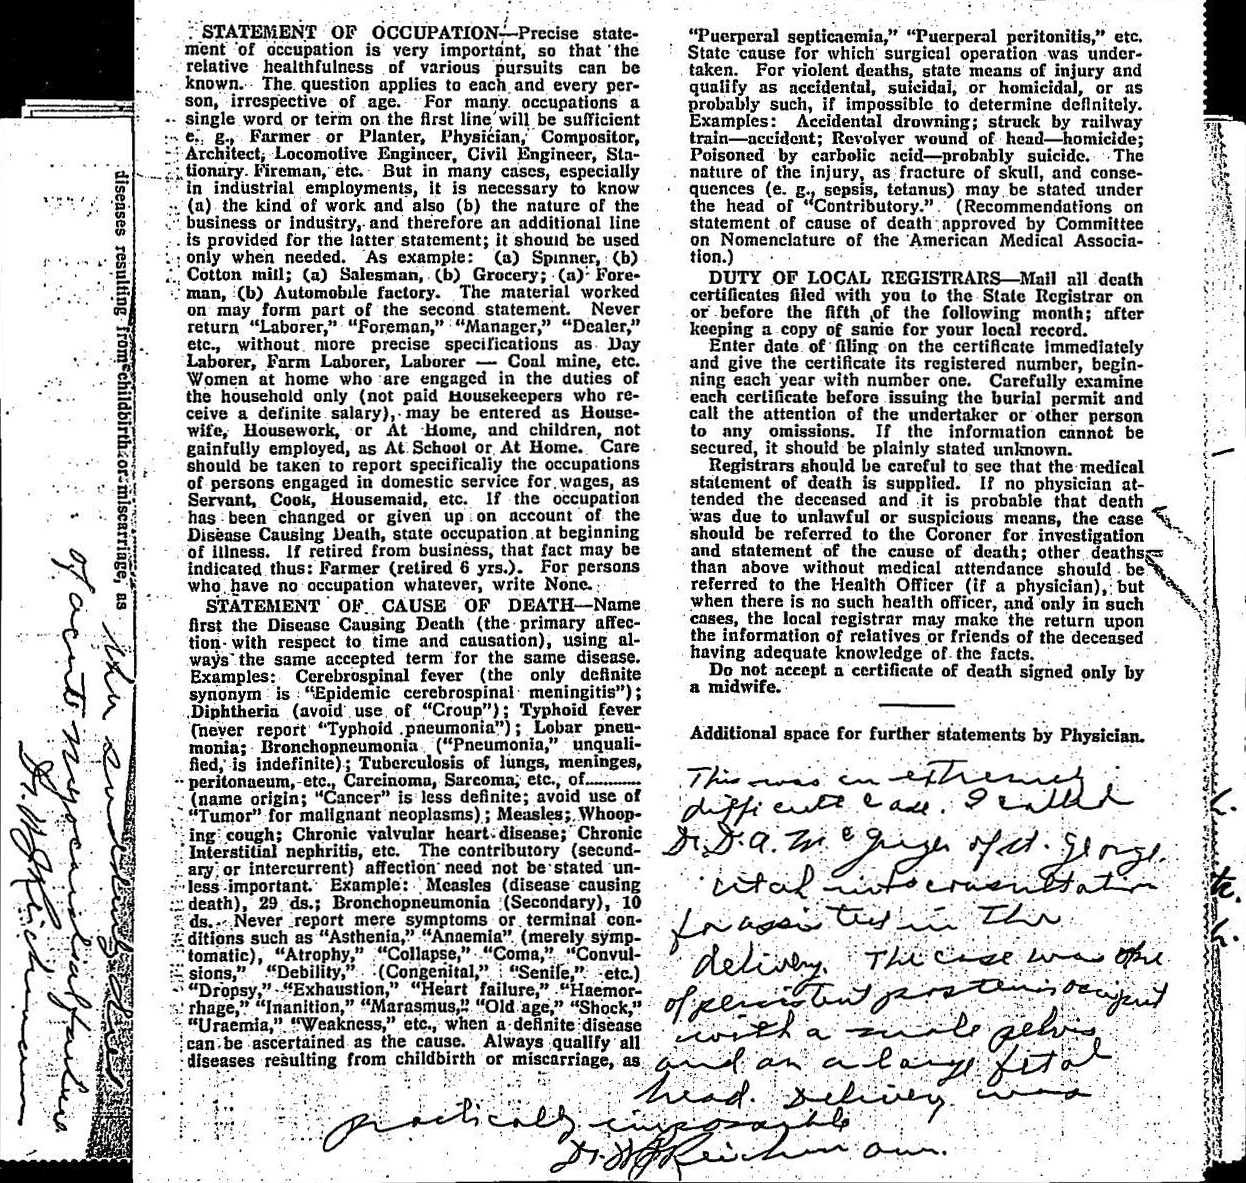 STATEMENT OF OCCUPATION—Precise state-
ment of occupation is very important, so that the
relative healthfulness of various pursuits can be
known. The question applies to each and every per-
son, irrespective of age. For many occupations a
single word or term on the first line will be sufficient
e. g., Farmer or Planter, Physician, Compositor,
Architect, Locomotive Engineer, Civil Engineer, Sta-
tionary Fireman, etc. But in many cases, especially
in industrial employments, it is necessary to know
(a) the kind of work and also (b) the nature of the
business or industry, and therefore an additional line
is provided for the latter statement; it should be used
only when needed. As example: (a) Spinner, (b)
Cotton mill; (a) Salesman, (b) Grocery; (a) Fore-
man, (b) Automobile factory. The material worked
on may form part of the second statement. Never
return "Laborer," "Foreman," "Manager," "Dealer,"
etc., without more precise specifications as Day
Laborer, Farm Laborer, Laborer — Coal mine, etc.
Women at home who are engaged in the duties of
the household only (not paid Housekeepers who re-
ceive a definite salary), may be entered as House-
wife, Housework, or At Home, and children, not
gainfully employed, as At School or At Home. Care
should be taken to report specifically the occupations
of persons engaged in domestic service for wages, as
Servant, Cook, Housemaid, etc. If the occupation
has been changed or given up on account of the
Disease Causing Death, state occupation at beginning
of illness. If retired from business, that fact may be
indicated thus: Farmer (retired 6 yrs.). For persons
who have no occupation whatever, write None.
STATEMENT OF CAUSE OF DEATH—Name
first the Disease Causing Death (the primary affec-
tion with respect to time and causation), using al-
ways the same accepted term for the same disease.
Examples: Cerebrospinal fever (the only definite
synonym is "Epidemic cerebrospinal meningitis");
Diphtheria (avoid use of "Croup"); Typhoid fever
(never report "Typhoid pneumonia"); Lobar pneu-
monia; Bronchopneumonia ("Pneumonia," unquali-
fied, is indefinite); Tuberculosis of lungs, meninges,
peritonaeum, etc., Carcinoma, Sarcoma, etc., of...........
(name origin; "Cancer" is less definite; avoid use of
"Tumor" for malignant neoplasms); Measles; Whoop-
ing cough; Chronic valvular heart disease; Chronic
Interstitial nephritis, etc. The contributory (second-
ary or intercurrent) affection need not be stated un-
less important. Example: Measles (disease causing
death), 29 ds.; Bronchopneumonia (Secondary), 10
ds. Never report mere symptoms or terminal con-
ditions such as "Asthenia," "Anaemia" (merely symp-
tomatic), "Atrophy," "Collapse," "Coma," "Convul-
sions," "Debility," (Congenital," "Senile," etc.)
"Dropsy," "Exhaustion," "Heart failure," "Haemor-
rhage," "Inanition," "Marasmus," "Old age," "Shock,"
"Uraemia," "Weakness," etc., when a definite disease
can be ascertained as the cause. Always qualify all
diseases resulting from childbirth or miscarriage, as
"Puerperal septicaemia," "Puerperal peritonitis," etc.
State cause for which surgical operation was under-
taken. For violent deaths, state means of injury and
qualify as accidental, suicidal, or homicidal, or as
probably such, if impossible to determine definitely.
Examples: Accidental drowning; struck by railway
train—accident; Revolver wound of head—homicide;
Poisoned by carbolic acid—probably suicide. The
nature of the injury, as fracture of skull, and conse-
quences (e. g., sepsis, tetanus) may be stated under
the head of "Contributory." (Recommendations on
statement of cause of death approved by Committee
on Nomenclature of the American Medical Associa-
tion.)
DUTY OF LOCAL REGISTRARS—Mail all death
certificates filed with you to the State Registrar on
or before the fifth of the following month; after
keeping a copy of same for your local record.
Enter date of filing on the certificate immediately
and give the certificate its registered number, begin-
ning each year with number one. Carefully examine
each certificate before issuing the burial permit and
call the attention of the undertaker or other person
to any omissions. If the information cannot be
secured, it should be plainly stated unknown.
Registrars should be careful to see that the medical
statement of death is supplied. If no physician at-
tended the deceased and it is probable that death
was due to unlawful or suspicious means, the case
should be referred to the Coroner for investigation
and statement of the cause of death; other deaths
than above without medical attendance should be
referred to the Health Officer (if a physician), but
when there is no such health officer, and only in such
cases, the local registrar may make the return upon
the information of relatives or friends of the deceased
having adequate knowledge of the facts.
Do not accept a certificate of death signed only by
a midwife.
Additional space for further statements by Physician.
This was an extremely
difficult case. I called
Dr. D. A. McGregor of St. George
into consultation
for assisted in the
delivery. The case was one
of persistent posterior occiput
with a small pelvis
and an a large fetal
head. Delivery was
practically impossible
Dr. W J Reichmann.
diseases resulting from childbirth or miscarriage, as
died
of acute myocardial failure
Dr. W J Reichmann